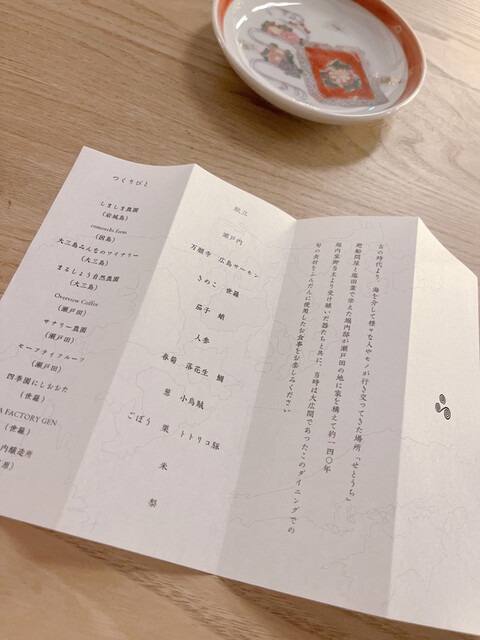 古の時代より、海を介して様々な人やモノが行き交ってきた場所「せとうち」
廻船問屋と塩田業で栄えた堀内邸が瀬戸田の地に家を構えて約一四〇年
堀内家御当主より受け継いだ器たちと共に、当時は大広間であったこのダイニングでの
旬の食材をふんだんに使用したお食事をお楽しみください
献立
瀬戸内
万願寺 広島サーモン
きのこ 世羅
茄子 蛸
人参
春菊 落花生 鯛
葱 小烏賊
ごぼう 栗 トトリコ豚
米
梨
つくりびと
しましま農園
(岩城島)
comorebi farm
(因島)
大三島みんなのワイナリー
(大三島)
まるしょう自然農園
(大三島)
Overview Coffee
(瀬戸田)
サナリー農園
(瀬戸田)
セーフティフルーツ
(瀬戸田)
四季園にしおおた
(世羅)
FACTORY GEN
(世羅)
内醸造所